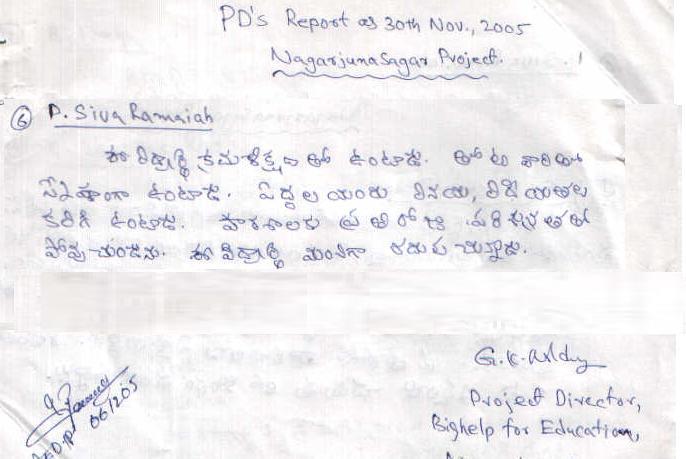 PD's Report as 30th Nov., 2005
Nagarjuna Sagar Project.
⑥ P. Siva Ramaiah
ఈ విద్యార్థి క్రమశిక్షణ తో ఉంటాడు. తోటి వారితో
స్నేహంగా ఉంటాడు. పెద్దల యందు వినయ, విధేయతలు
కలిగి ఉంటాడు. పాఠశాలకు ప్రతిరోజు పరిశుభ్రతతో
పోవుచుండెను. ఈ విద్యార్థి మంచిగా చదువుచున్నాడు.
G.K.
Project Director,
Bighelp for Education,
061205